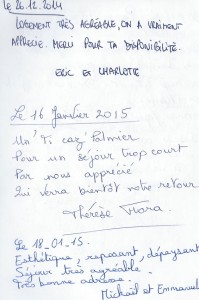 Le 26.12.2014
LOGEMENT TRÈS AGRÉABLE, ON A VRAIMENT
APPRÉCIÉ. MERCI POUR TA DISPONIBILITÉ.
ERIC et CHARLOTTE
Le 16 Janvier 2015
Un' Ti caz' Palmier
Pour un séjour trop court
Par nous apprécié
Qui verra bientôt notre retour
Thérèse
Le 18-01-15.
Esthétique, reposant, dépaysant
Séjour très agréable.
Très bonne adresse.
Mickaël et Emmanuel